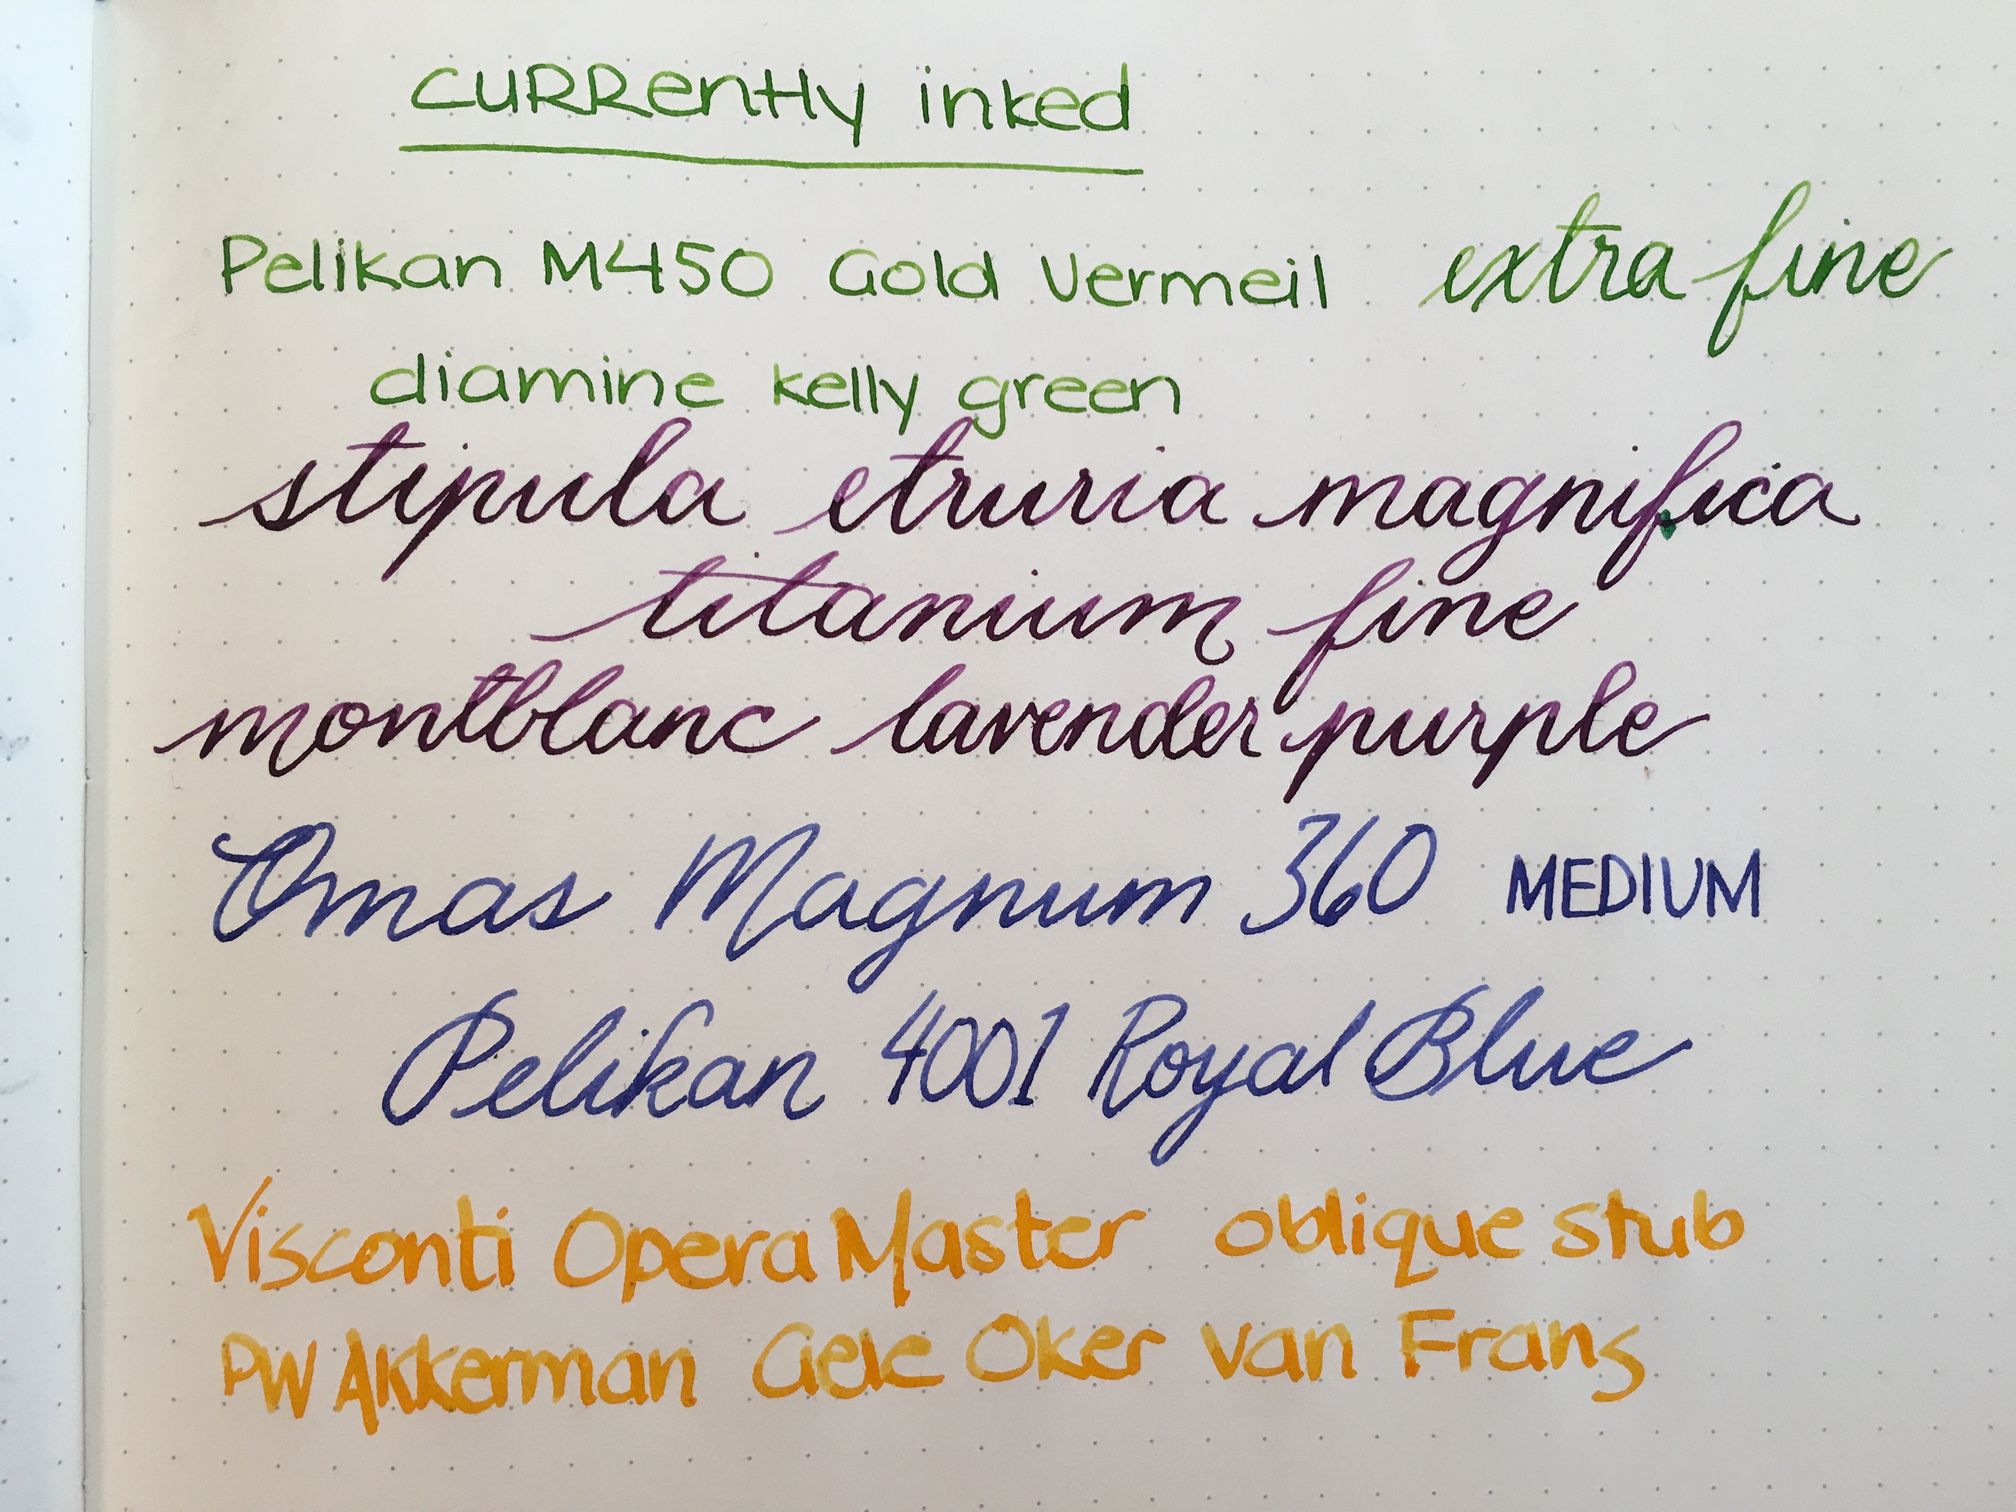 currently inked
Pelikan M450 Gold Vermeil extra fine
diamine kelly green
stipula etruria magnifica
titanium fine
montblanc lavender purple
Omas Magnum 360 MEDIUM
Pelikan 4001 Royal Blue
Visconti Opera Master oblique stub
PW Akkerman Gele Oker van Frans